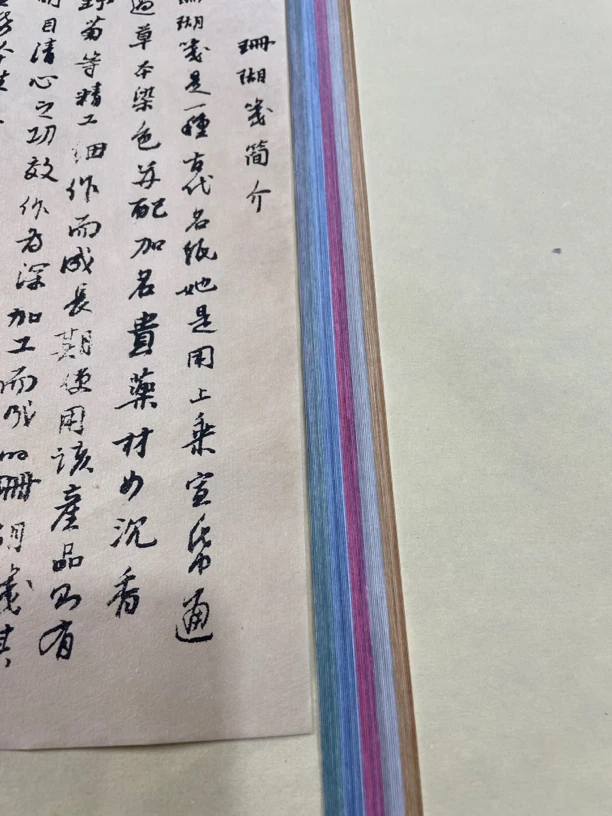 珊瑚箋簡介
珊瑚箋是一種古代名紙她是用上乘宣帋通
過草本染色並配加名貴藥材如沉香
野菊等精工细作而成長期使用該產品具有
明目清心之功效作者深加工而成的珊瑚箋其